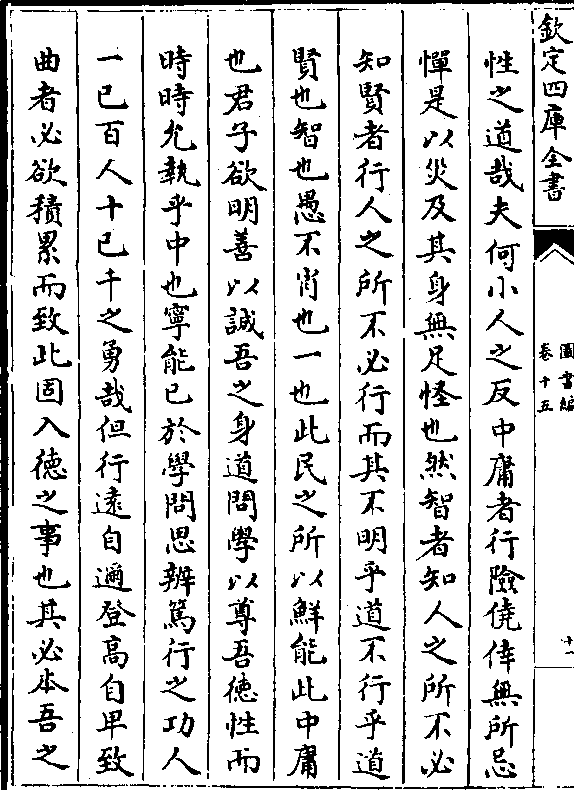 欽定四庫全書
圖書編
卷十五
十一
性之道哉夫何小人之反中庸者行險僥倖無所忌
憚是以災及其身無足怪也然智者知人之所不必
知賢者行人之所不必行而其不明乎道不行乎道
賢也智也愚不肖也一也此民之所以鮮能此中庸
也君子欲明善以誠吾之身道問學以尊吾德性而
時時允執乎中也寧能已於學問思辨篤行之功人
一已百人十已千之勇哉但行遠自邇登高自卑致
曲者必欲積累而致此固入德之事也其必本吾之